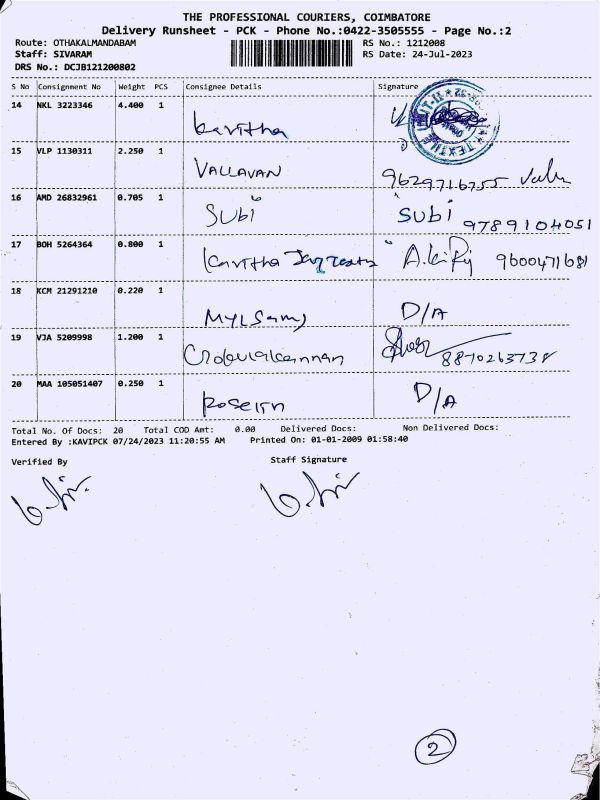 THE PROFESSIONAL COURIERS, COIMBATORE
Delivery Runsheet - PCK - Phone No.:0422-3505555 - Page No.:2
Route: OTHAKALMANDABAM RS No.: 1212008
Staff: SIVARAM RS Date: 24-Jul-2023
DRS No.: DCJB121200802
S No Consignment No Weight PCS Consignee Details Signature
14 NKL 3223346 4.400 1 kavitha
15 VLP 1130311 2.250 1 VALLAVAN 9629716755
16 AMD 26832961 0.705 1 SUBi SUBi 9789104051
17 BOH 5264364 0.800 1 Kavitha 9600471681
18 KCM 21291210 0.220 1 MYLSamy D/A
19 VJA 5209998 1.200 1 8870263738
20 MAA 105051407 0.250 1 D/A
Total No. Of Docs: 20 Total COD Amt: 0.00 Delivered Docs: Non Delivered Docs:
Entered By :KAVIPCK 07/24/2023 11:20:55 AM Printed On: 01-01-2009 01:58:40
Verified By Staff Signature
2